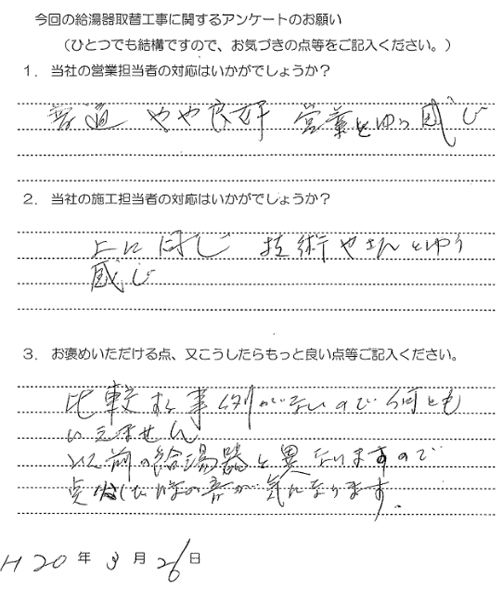 今回の給湯器取替工事に関するアンケートのお願い
(ひとつでも結構ですので、お気づきの点等をご記入ください。)
1. 当社の営業担当者の対応はいかがでしょうか?
普通 やや良好 営業とゆう感じ
2. 当社の施工担当者の対応はいかがでしょうか?
上に同じ 技術やさんとゆう
感じ
3. お褒めいただける点、又こうしたらもっと良い点等ご記入ください。
比較する事例がないので何とも
いえません
以前の給湯器と異なりますので
点火した時の音が気になります.
H20年3月26日